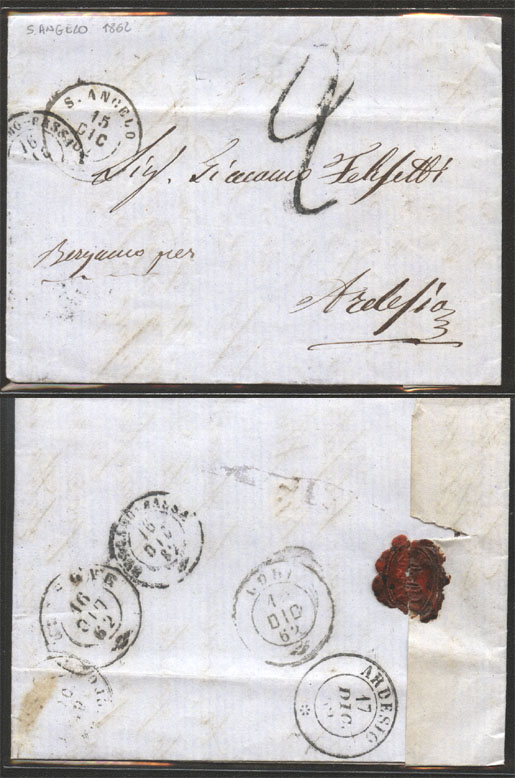 S. ANGELO 1862
S. ANGELO
15
DIC
16
2
Sig. Giacomo Felisetti
Bergamo per
Ardesio
16
DIC
62
16
DIC
62
LODI
DIC
62
ARDESIO
17
DIC.